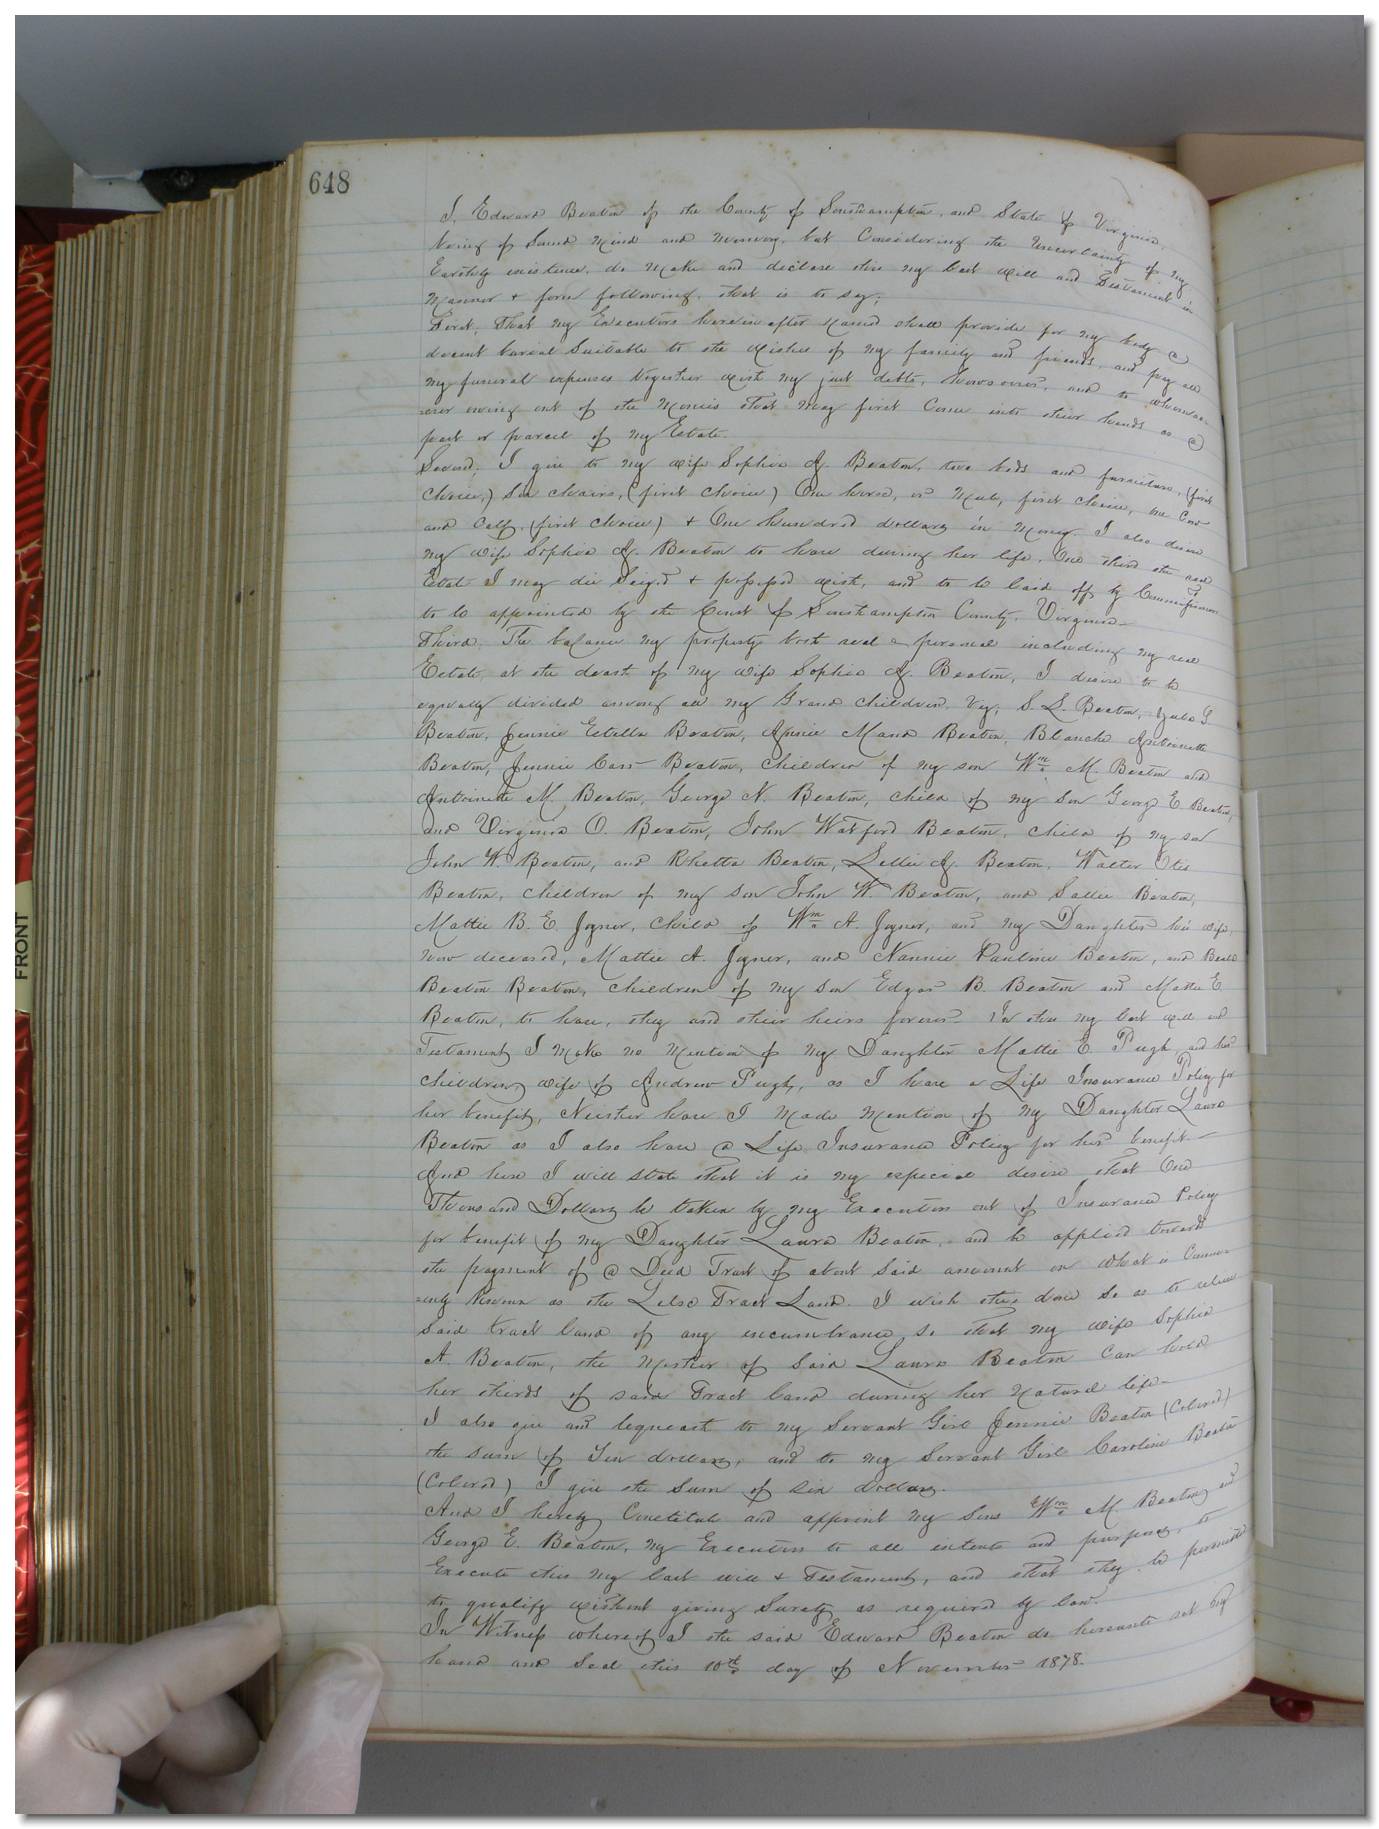 648
I, Edward Beaton of the County of Southampton, and State of Virginia,
being of Sound Mind and Memory, but Considering the Uncertainty of my
Earthly existence, do Make and declare this my last will and Testament in
Manner & form following, that is to say;
First, That my Executors herein after Named shall provide for my body a
decent burial Suitable to the wishes of my family and friends, and pay all
my funeral expenses together with my just debts, howsoever, and to whomso-
-ever owing out of the Monies that May first Come into their hands as a
part or parcel of my Estate.
Second, I give to my wife Sophia A. Beaton, two beds and furniture, (first
Choice,) Six chairs, (first Choice) One horse, or Mule, first choice, one Cow
and Calf, (first Choice) & One hundred dollars in Money. I also desire
my wife Sophia A. Beaton to have during her life, One third the real
Estate I may die Seized & possessed with, and to be laid off by Commissioners
to be appointed by the Court of Southampton County, Virginia—
Third, The balance my property both real & personal including my real
Estate, at the death of my wife Sophia A. Beaton, I desire to be
equally divided among all my Grand children, Viz; S. L. Beaton, Jula G
Beaton, Jennie Estella Beaton, Annie Maud Beaton, Blanche Antoinette
Beaton, Jennie Cass Beaton, children of my son Wm M. Beaton and
Antoinette M. Beaton, George N. Beaton, child of my Son George E Beaton,
and Virginia O. Beaton, John Watford Beaton, child of my son
John W. Beaton, and Rhetta Beaton, Lellie A. Beaton, Walter Otis
Beaton, children of my son John W. Beaton, and Sallie Beaton,
Mattie B. E. Joyner, child of Wm A. Joyner, and my Daughter his wife,
now deceased, Mattie A. Joyner, and Nannie Pauline Beaton, and
Beaton Beaton, children of my son Edgar B. Beaton and Mattie E.
Beaton, to have, they and their heirs forever. In this my last will and
Testament, I make no Mention of my Daughter Mattie E. Pugh, and her
children, wife of Andrew Pugh, as I have a Life Insurance Policy for
her benefit, Neither have I made Mention of my Daughter Laura
Beaton as I also have a Life Insurance Policy for her benefit—
And here I will state that it is my especial desire that One
Thousand Dollars be taken by my Executors out of Insurance Policy
for benefit of my Daughter Laura Beaton, and be applied toward
the payment of a Deed Trust of about Said amount on what is Commo-
-nly known as the Tract Land. I wish this done so as to relieve
Said tract land of any incumbrance, so that my wife Sophia
A. Beaton, the Mother of Said Laura Beaton Can hold
her thirds of said Tract land during her Natural life—
I also give and bequeath to my Servant Girl Jennie Beaton (Colored)
the sum of Ten dollars, and to my Servant Girl Caroline Beaton
(Colored) I give the Sum of Six dollars.
And I hereby Constitute and appoint my Sons Wm M. Beaton, and
George E. Beaton, my Executors to all intents and purposes, to
Execute this my last will & Testament, and that they be permitted
to qualify without giving Surety as required by law.
In Witness whereof, I the said Edward Beaton do hereunto set my
hand and Seal this 10th day of November 1878.
FRONT